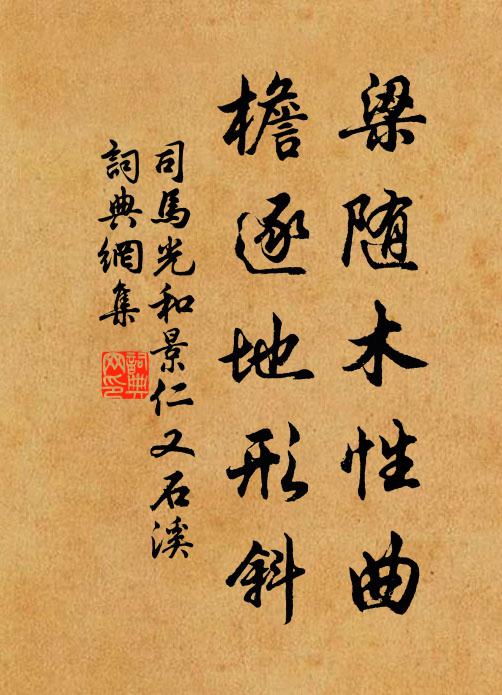 梁随木性曲
檐逐地形斜
司馬光和景仁又石溪
詞典網集
詞典
网印